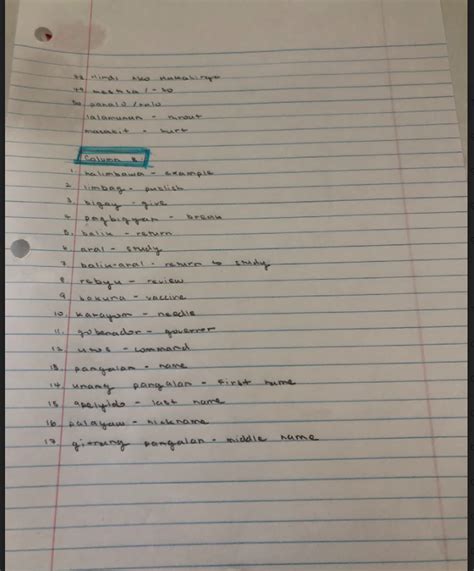 48 hindi ako
49
50 panalo / talo
lalamunan -
masakit - hurt
Column B
1. halimbawa - example
2. limbag - publish
3. bigay - give
4. pagbigyan -
5. balik - return
6. aral - study
7. balik-aral - return to study
8 rebyu - review
9 bakuna - vaccine
10. karayom - needle
11. gobenador - governor
12 utos - command
13 pangalan - name
14 unang pangalan - first name
15 apelyido - last name
16 palayaw - nickname
17. gitnang pangalan - middle name